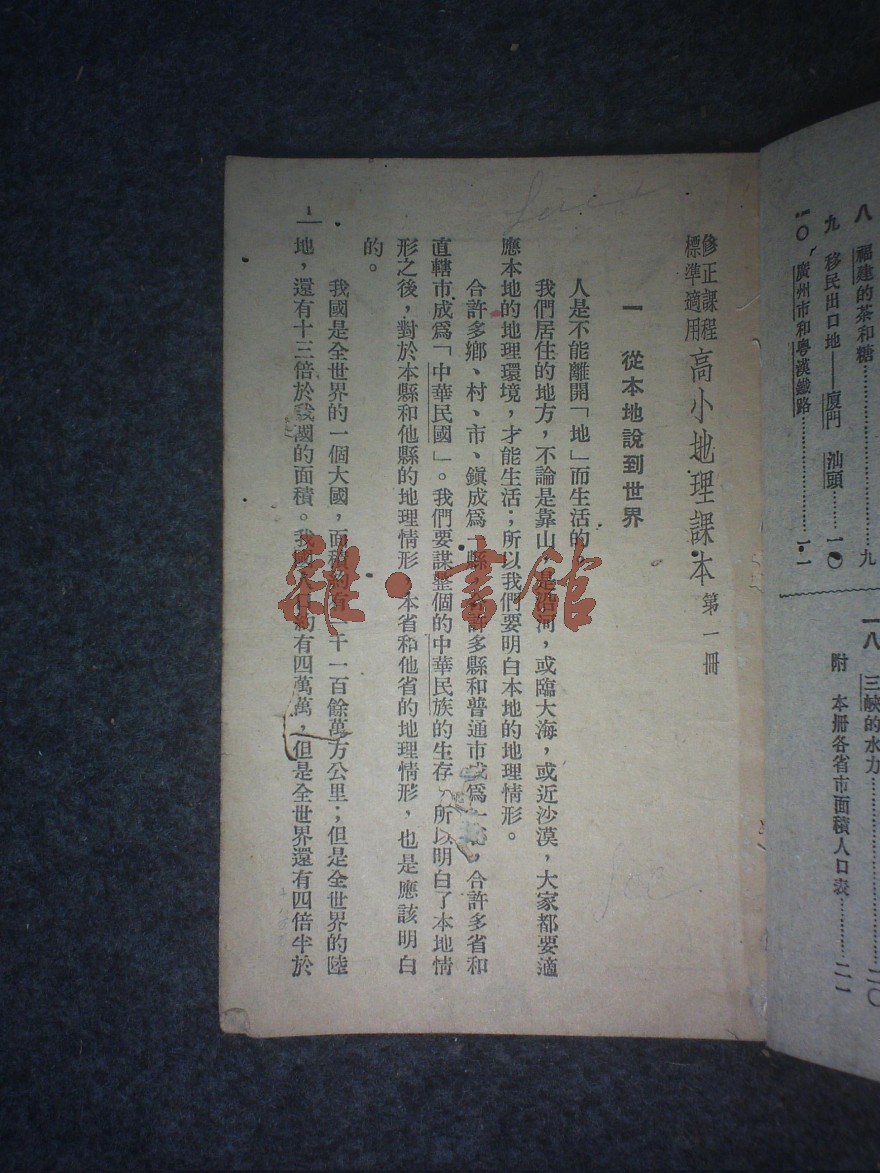 八 福建的茶和糖……九
九 移民出口地——廈門 汕頭……一〇
一〇 廣州市和粵漢鐵路……一一
一八 三峽的水力……二〇
附 本册各省市面積人口表……二一
修正課程標準適用 高小地理課本 第一冊
一 從本地說到世界
人是不能離開「地」而生活的。
我們居住的地方，不論是靠山，是沿河，或臨大海，或近沙漠，大家都要適
應本地的地理環境，才能生活；所以我們要明白本地的地理情形。
合許多鄉、村、市、鎭成爲一縣，合許多縣和普通市成爲一省，合許多省和
直轄市成爲「中華民國」。我們要謀整個的中華民族的生存，所以明白了本地情
形之後，對於本縣和他縣的地理情形，本省和他省的地理情形，也是應該明白
的。
我國是全世界的一個大國，面積約有一千一百餘萬方公里；但是全世界的陸
地，還有十三倍於我國的面積。我國人口約有四萬萬，但是全世界還有四倍半於
1
雜·書館